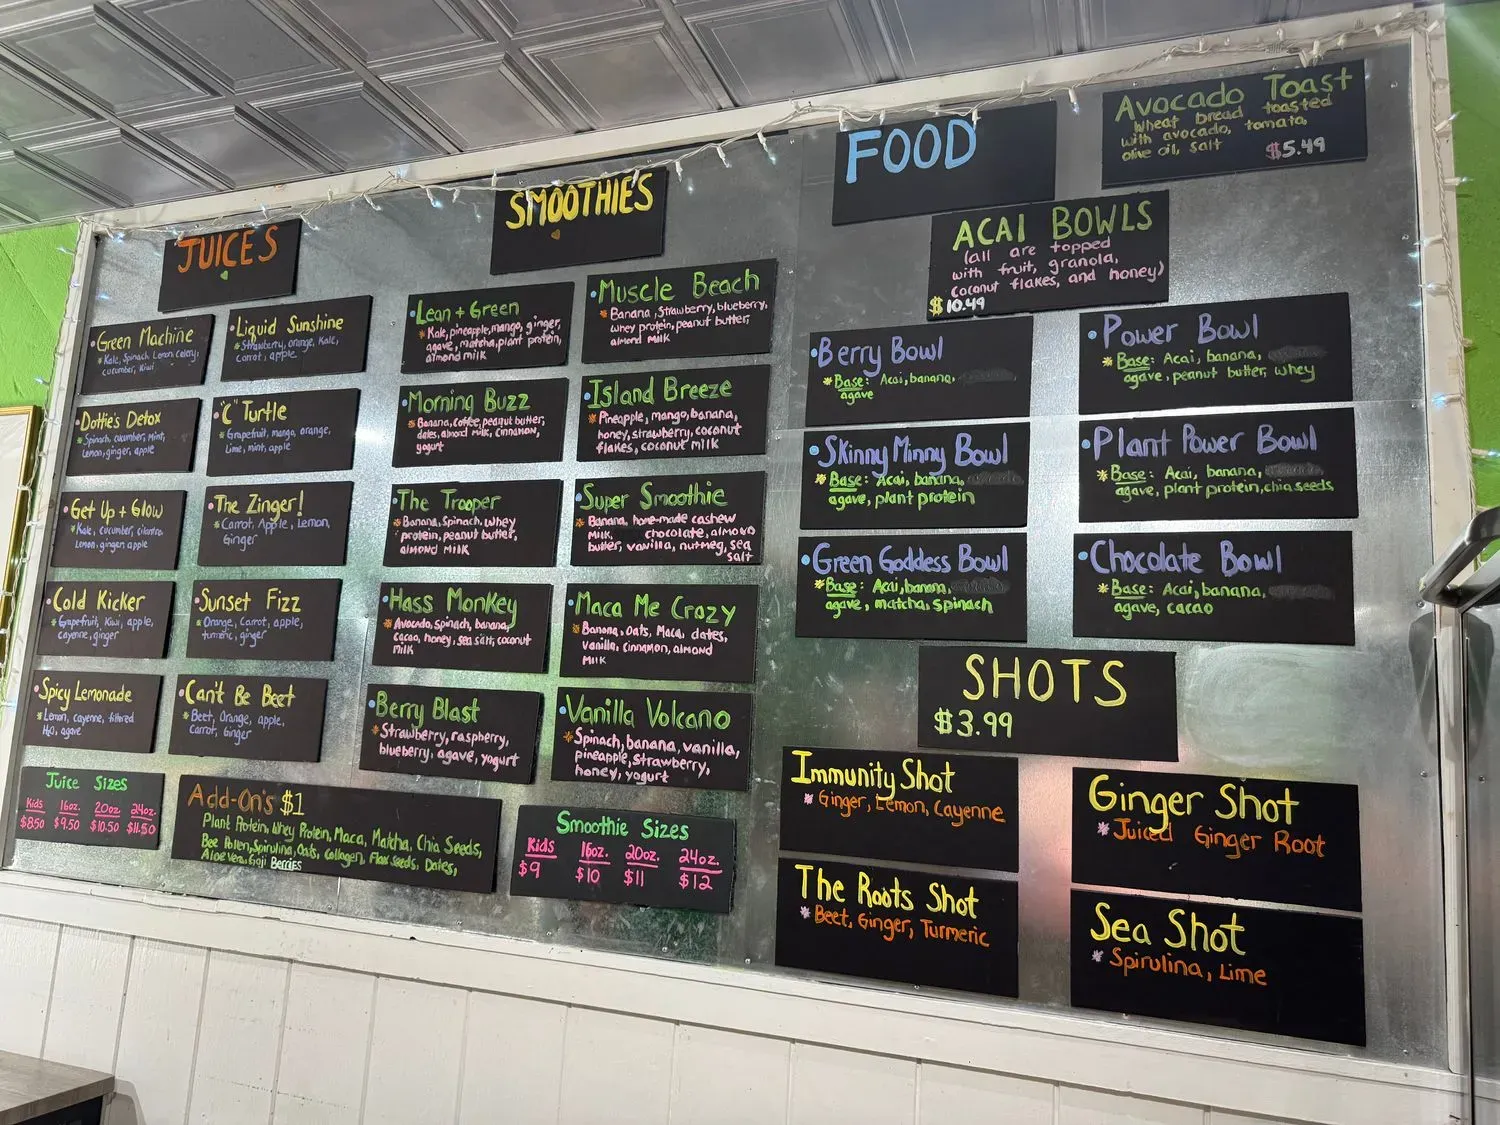 JUICES
Green Machine
Kale, Spinach Lemon, celery,
cucumber, Kiwi
Liquid Sunshine
Strawberry, orange, Kale,
carrot, apple
Dottie's Detox
Spinach, cucumber, mint,
Lemon, ginger, apple
"C" Turtle
Grapefruit, mango, orange,
Lime, mint, apple
Get Up + Glow
Kale, cucumber, cilantro
Lemon, ginger, apple
The Zinger!
Carrot, Apple, Lemon,
Ginger
Cold Kicker
Grapefruit, Kiwi, apple,
cayenne, ginger
Sunset Fizz
Orange, Carrot, apple,
turmeric, ginger
Spicy Lemonade
Lemon, cayenne, filtered
H2O, agave
Can't Be Beet
Beet, Orange, apple,
Carrot, Ginger
Juice Sizes
Kids 16oz. 20oz. 24oz.
$8.50 $9.50 $10.50 $11.50
Add-On's $1
Plant Protein, Whey Protein, Maca, Matcha, Chia Seeds,
Bee Pollen, Spirulina, Oats, Collagen, Flax Seeds, Dates,
Aloe Vera, Goji Berries
SMOOTHIES
Lean + Green
Kale, pineapple, mango, ginger,
agave, matcha, plant protein,
almond milk
Muscle Beach
Banana, Strawberry, blueberry,
whey protein, peanut butter,
almond milk
Morning Buzz
Banana, coffee, peanut butter,
dates, almond milk, cinnamon,
yogurt
Island Breeze
Pineapple, mango, banana,
honey, strawberry, coconut
flakes, coconut milk
The Trooper
Banana, Spinach, whey
protein, peanut butter,
almond milk
Super Smoothie
Banana, home-made cashew
milk, chocolate, almond
butter, vanilla, nutmeg, sea
salt
Hass Monkey
Avocado, spinach, banana,
cacao, honey, sea salt, coconut
milk
Maca Me Crazy
Banana, Oats, Maca, dates,
vanilla, cinnamon, almond
milk
Berry Blast
Strawberry, raspberry,
blueberry, agave, yogurt
Vanilla Volcano
Spinach, banana, vanilla,
pineapple, strawberry,
honey, yogurt
Smoothie Sizes
Kids 16oz. 20oz. 24oz.
$9 $10 $11 $12
FOOD
Avocado Toast
Wheat bread toasted
with avocado, tomato,
olive oil, salt $5.49
ACAI BOWLS
(all are topped
with fruit, granola,
coconut flakes, and honey)
$10.49
Berry Bowl
Base: Acai, banana,
agave
Power Bowl
Base: Acai, banana,
agave, peanut butter, whey
Skinny Minny Bowl
Base: Acai, banana,
agave, plant protein
Plant Power Bowl
Base: Acai, banana,
agave, plant protein, chia seeds
Green Goddess Bowl
Base: Acai, banana,
agave, matcha, spinach
Chocolate Bowl
Base: Acai, banana,
agave, cacao
SHOTS
$3.99
Immunity Shot
Ginger, Lemon, Cayenne
Ginger Shot
Juiced Ginger Root
The Roots Shot
Beet, Ginger, Turmeric
Sea Shot
Spirulina, Lime